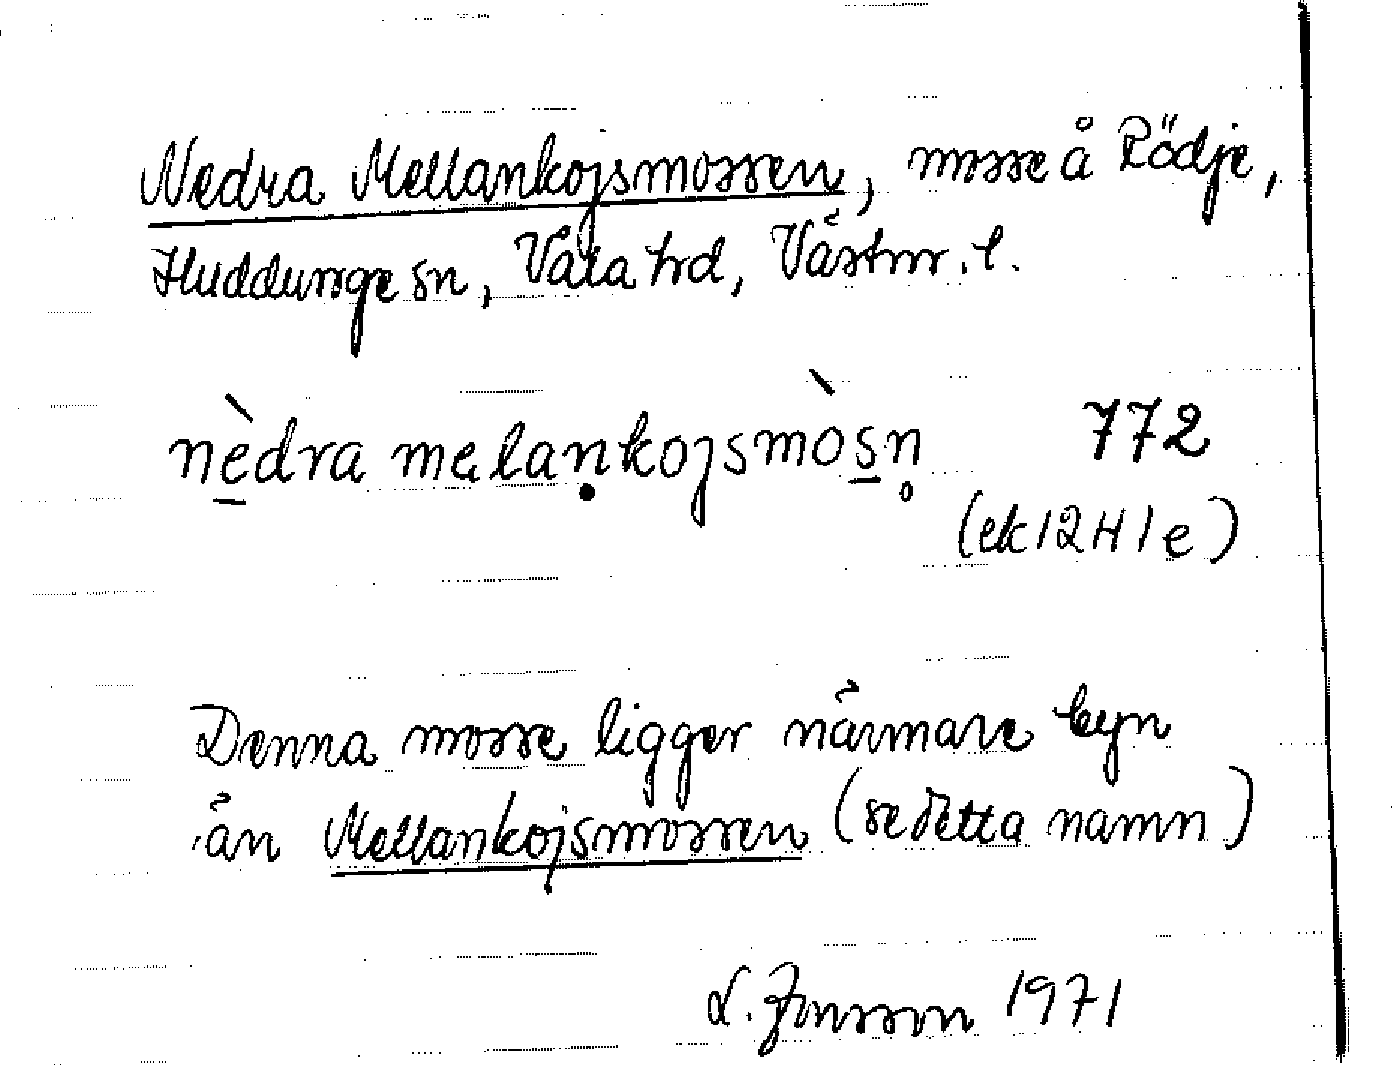 Nedra Mellankojsmossen, mosse å Rödje,
Huddunge sn, Våla hd, Västm. l.
nèdra melaṇkojsmòsn̥ 772
(ek 12H1e)
Denna mosse ligger närmare byn
än Mellankojsmossen (se detta namn)
L. Jonsson 1971